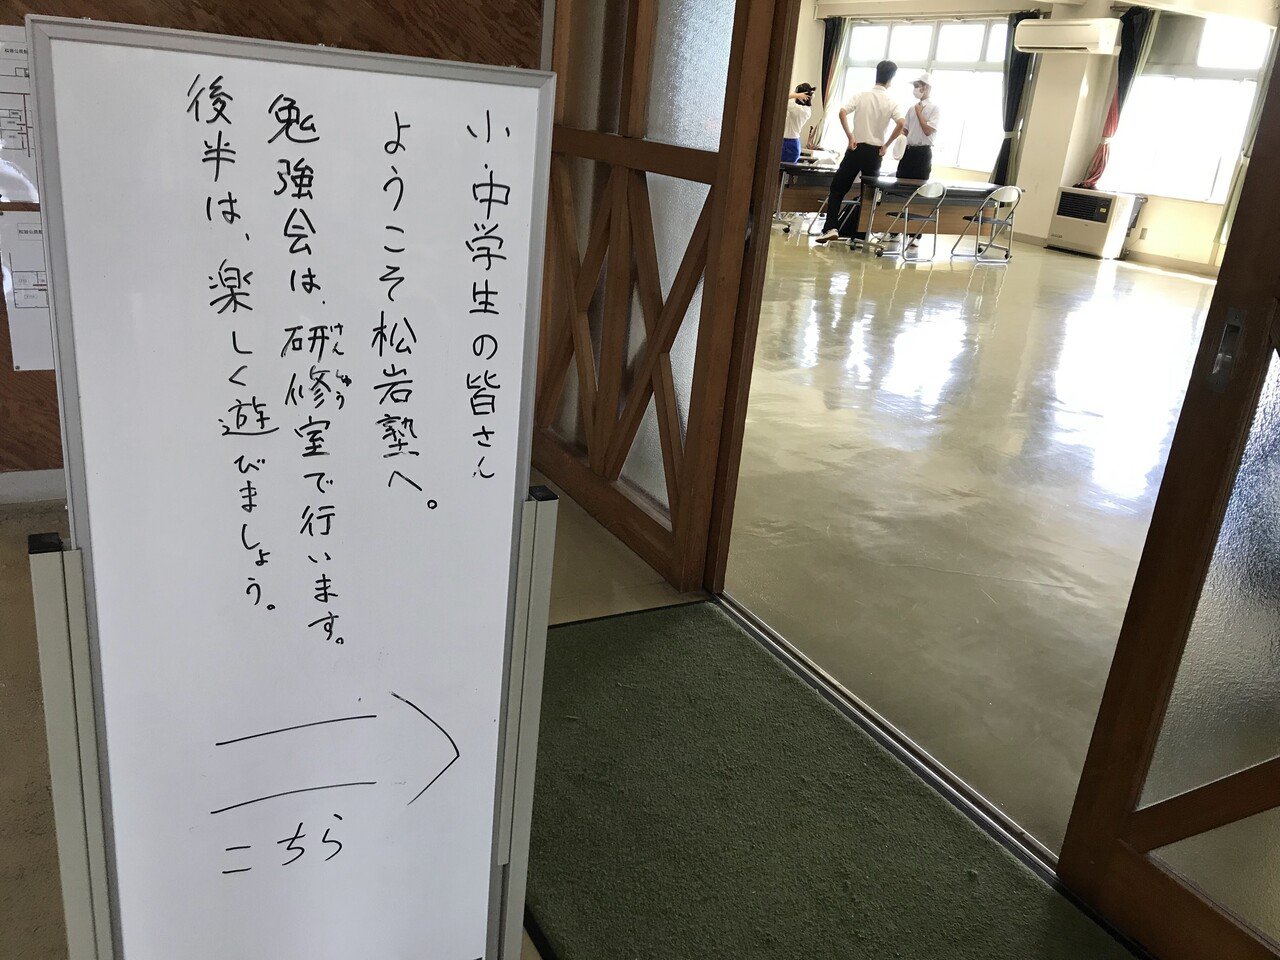 小・中学生の皆さん
ようこそ松岩塾へ。
勉強会は、研修室で行います。
けんしゅう
後半は、楽しく遊びましょう。
こちら